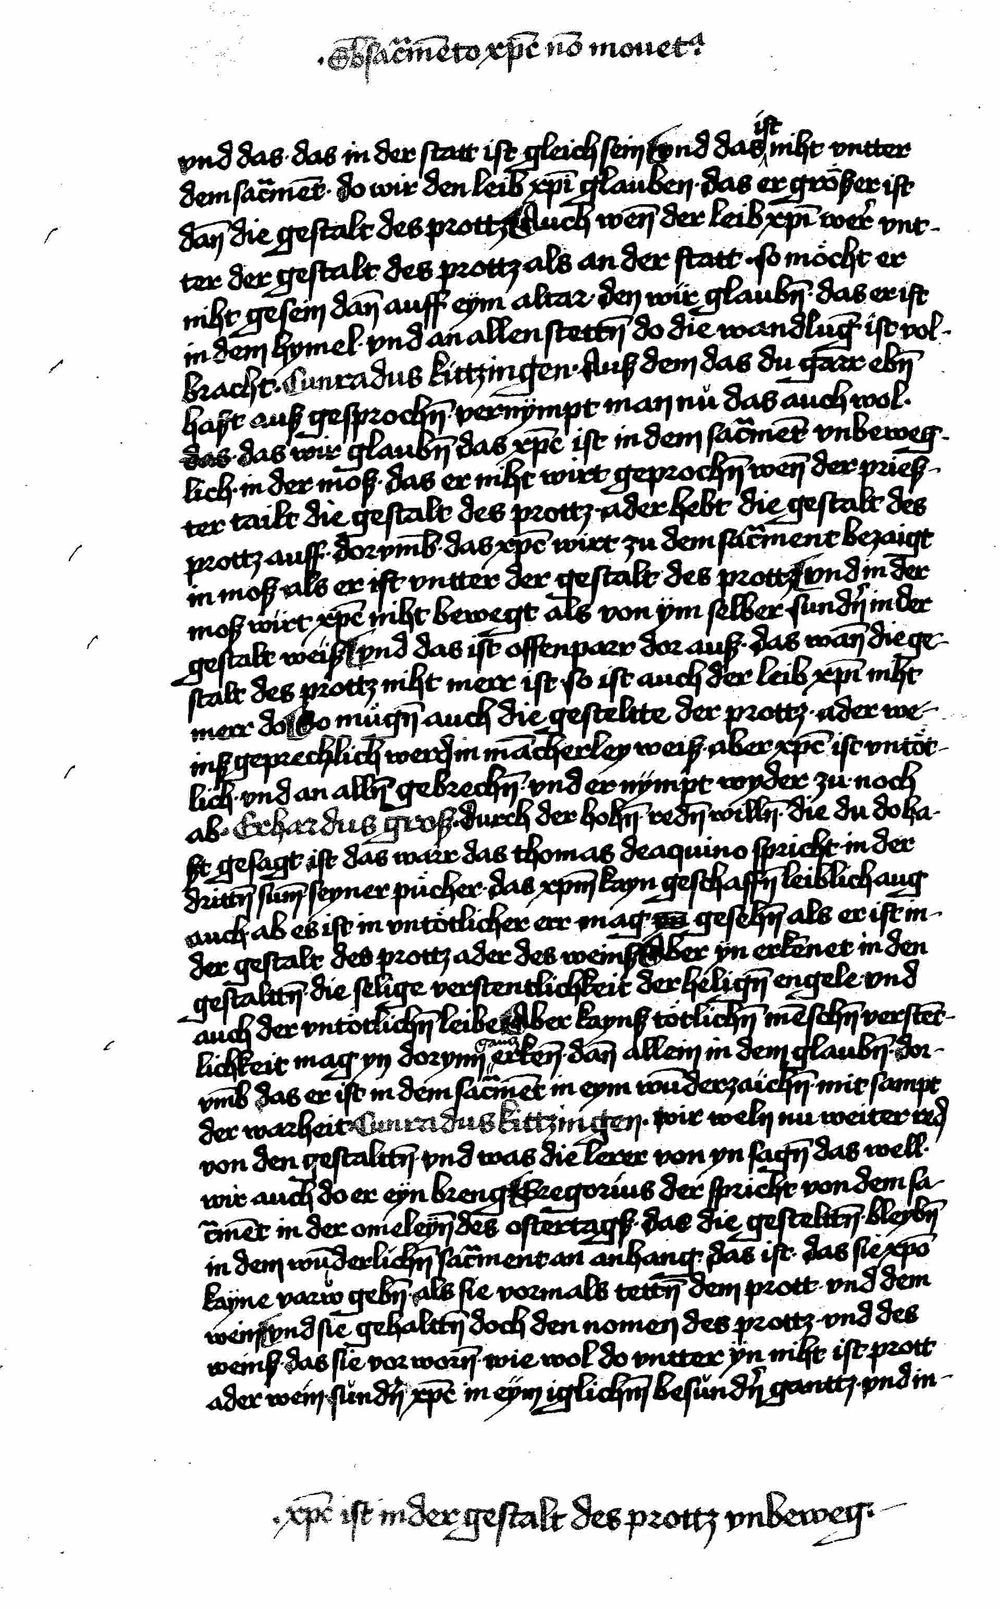 · Sb sacͣmēto xp̄c nō mouetᵃ
vnd das · das in der statt ist gleich sein vnd das ist niht vntter
dem sacͣmēt · do wir den leib xp̄i glauben · das er größer ist
dan̄ die gestalt des prottz Auch wen̄ der leib xp̄i wer vnt-
ter der gestalt des prottz als an der statt · so möcht er
niht gesein dan̄ auff eym altar · den wir glaubn̄ · das er ist
in dem hymel · vnd an allen stettn̄ do die wandluḡ ist vol-
bracht · Cunradus kittzingen · Auß dem das du garr ebn̄
hast auß gesprochn̄ vernympt man nů das auch wol ·
das · das wir glaubn̄ das xp̄c ist in dem sacͣmēt vnbeweg-
lich · in der moß · das er niht wirt geprochn̄ wen̄ der prieß-
ter tailt die gestalt des prottz · ader hebt die gestalt des
prottz auff · dorym̄b · das xp̄c wirt zu dem sacͣment bezaigt
in moß als er ist vntter der gestalt des prottz vnd in der
moß wirt xp̄c niht bewegt als von ym selber sundn̄ in der
gestalt weiß vnd das ist offenparr dor auß · das wan̄ die ge-
stalt des prottz niht merr ist · so ist auch der leib xp̄i niht
merr do So mügn̄ auch die gesteltte der prottz · ader we-
inß geprechlich werd in mācherley weiß · aber xp̄c ist vntöt-
lich · vnd an alln̄ gebrechn̄ · vnd er nympt wyder zu · noch
ab · Erhardus groß · durch der hohn̄ redn̄ willn̄ · die du do ha-
st gesagt ist das warr das thomas deaquino spricht · in der
drittn̄ sum̄ seyner pücher · das xp̄m kayn geschaffn̄ leiblich aug
auch ab es ist in vntötlicher err · mag gesehn̄ als er ist in-
der gestalt des prottz ader des weinß Aber yn erkēnet in den
gestalttn̄ die selige verstentlichkeit der helign̄ engele vnd
auch der vntötlichn̄ leibe Aber kaynß tötlichn̄ mēschn̄ verstēt-
lichkeit mag yn dorynn gantz erkēn̄ · dan̄ allein in dem glaubn̄ · dor-
vm̄b das er ist in dem sacͣmēt in eym wūderzaichn̄ · mit sampt
der warheit Cunradus kittzingen · wir weln nu weiter red
von den gestalttn̄ · vnd was die lerer von yn sagn̄ das well
wir auch do er eyn breng Gregorius der spricht von dem sa-
cͣmēt in der omeleyn̄ des ostertagß · das die gestelttn̄ · bleybn̄
in dem wūderlichn̄ sacͣment an anhang · das ist · das sie xp̄o
kayne varw gebn̄ als sie vormals tettn̄ dem prott · vnd dem
wein vnd sie gehalttn̄ doch den nomen des prottz · vnd des
weinß · das sie vor worn̄ · wie wol do vntter yn niht ist prott
ader wein · sundn̄ xp̄c in eym iglichn̄ besundn̄ ganttz · vnd in-
· xp̄c ist in der gestalt des prottz vnbeweg ·